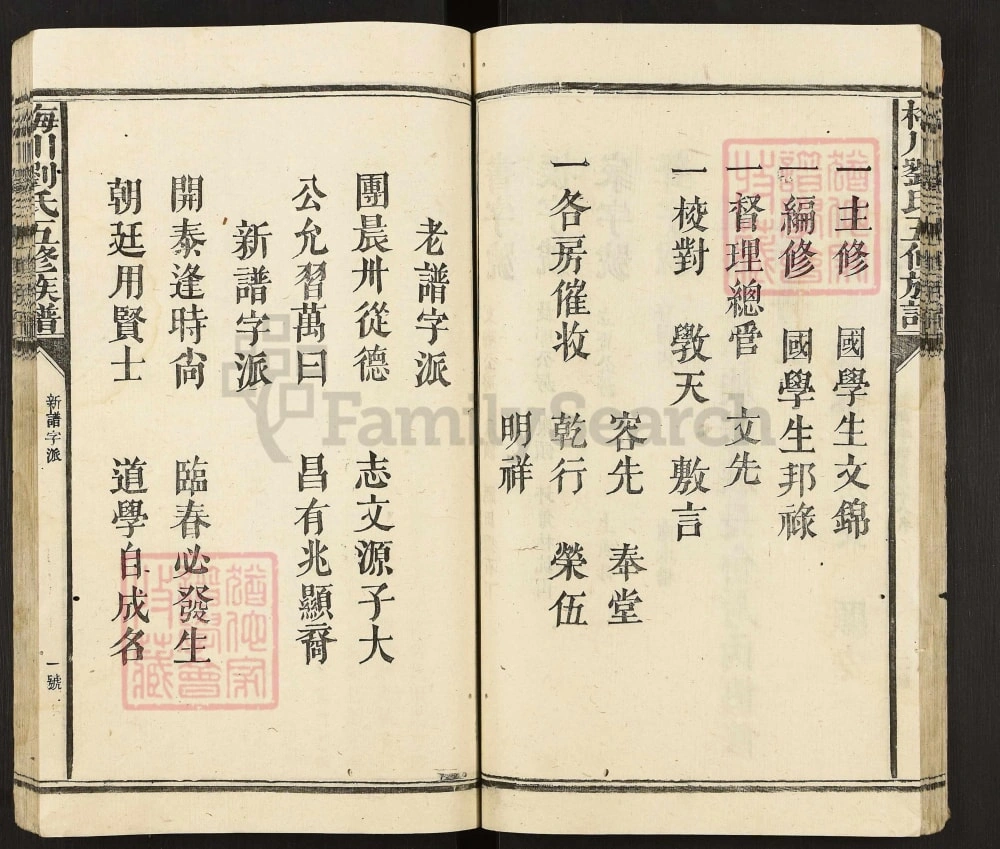 一主修 國學生文錦
一編修 國學生邦祿
一督理總管 文先
一校對 斆天 敷言
容先 奉堂
一各房催收 乾行 榮伍
明祥
老譜字派
團晨卅從德 志文源子大
公允習萬曰 昌有兆顯裔
新譜字派
開泰逢時尙 臨春必發生
朝廷用賢士 道學自成名
海川劉氏五修族譜
新譜字派
一號
FamilySearch